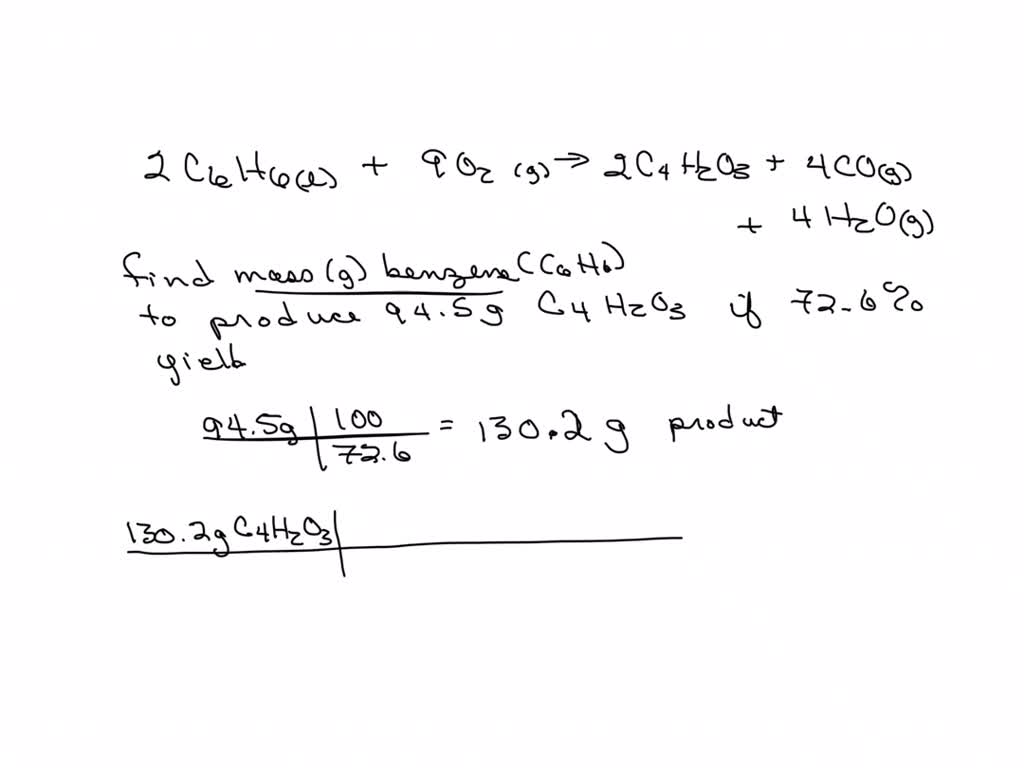 2 C6H6(l) + 9O2 (g) → 2C4H2O3 + 4CO(g)
+ 4H2O(g)
find mass(g) benzene (C6H6)
to produce 94.5g C4H2O3 if 72.6%
yield
94.5g | 100
72.6
= 130.2 g product
130.2g C4H2O3 |